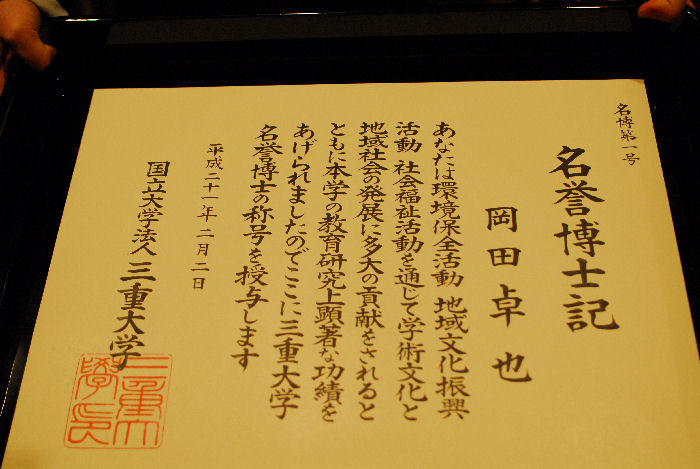 名博第一号
名誉博士記
岡田卓也
あなたは環境保全活動 地域文化振興
活動 社会福祉活動を通じて学術文化と
地域社会の発展に多大の貢献をされると
ともに本学の教育研究上顕著な功績を
あげられましたのでここに三重大学
名誉博士の称号を授与します
平成二十一年二月二日
国立大学法人三重大学
三重大
学長印